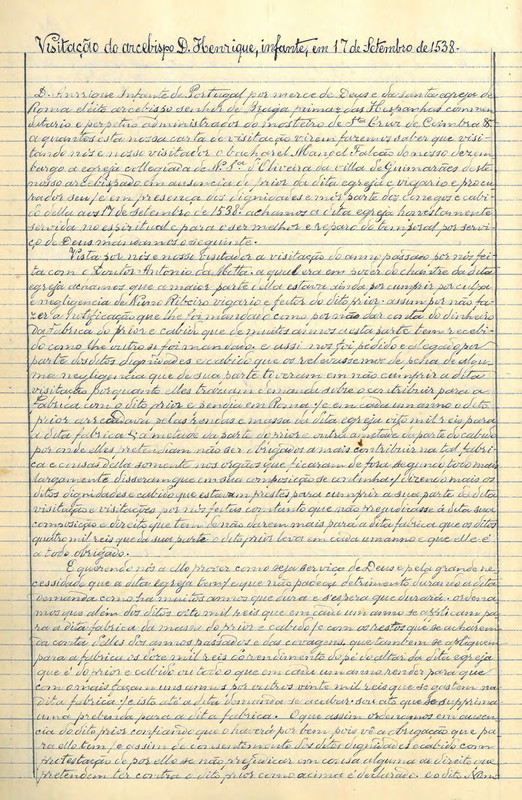 Visitação do arcebispo D. Henrique, infante, em 17 de Setembro de 1538.
D. Anrrique Infante de Portugal por merce de Deus e da santa egreja de
Roma eleito arcebispo senhor de Braga primaz das Hespanhas commen
datario e perpetuo administrador do mosteiro de Sta Cruz de Coimbra &a
a quantos esta nossa carta de visitação virem fazemos saber que visi-
tando nós e nosso visitador o bacharel Manoel Falcão do nosso dezem
bargo a egreja collegiada de N. Sa d'Oliveira da villa de Guimarães deste
nosso arcebispado em ausencia do prior da dita egreja e vigario e procu
rador seu, e em presença das dignidades e mór parte dos conegos e cabi-
do della aos 17 de setembro de 1538 achamos a dita egreja honestamente
servida no espiritual e para o ser melhor e reparo do temporal por servi-
ço de Deus mandamos o seguinte.
Vista por nós e nosso visitador a visitação do anno passado por nós fei-
ta com o Doutor Antonio da Motta, a qual era em poder do chantre da dita
egreja achamos que a maior parte della estava ainda por cumprir por culpa
e negligencia de Nuno Ribeiro vigario e feitor do dito prior assim por não fa-
zer a notificação que lhe foi mandado como por não dar conta do dinheiro
da fabrica do prior e cabido que de muitos annos a esta parte tem recebi-
do como lhe outro si foi mandado, e assi nos foi pedido e allegado por
parte dos ditos dignidades e cabido que os relevassemos de pena de algu-
ma negligencia que de sua parte tiveram em não cumprir a dita
visitação porquanto elles traziam demanda sobre o contribuir para a
fabrica com o dito prior e pendia em Roma, e em cada um anno o dito
prior arrecadava pelas rendas e massa da dita egreja oito mil reis para
a dita fabrica a metade da parte do prior e outra ametade da parte do cabido
por onde elles pretendiam não ser obrigados a mais contribuir na tal fabri-
ca e cousas della somente nos orgãos que ficaram de fóra segundo tudo mais
largamente disseram que em sua composição se continha, dizendo mais os
ditos dignidades e cabido que estavam prestes para cumprir a sua parte da dita
visitação e visitações por nós feitas comtanto que não prejudicasse á dita sua
composição e direito que tem de não darem mais para a dita fabrica que os ditos
quatro mil reis que da sua parte o dito prior leva em cada um anno e que elle é
a todo obrigado.
E querendo nós a ello prover como seja serviço de Deus e pela grande ne-
cessidade que a dita egreja tem, e que não padeça detrimento durando a dita
demanda como ha muitos annos que dura e se espera que durará, ordena
mos que além dos ditos oito mil reis que em cada um anno se applicam pa-
ra a dita fabrica da massa do prior e cabido, e com os restos que se acharem
na conta delles dos annos passados e das covagens, que tambem se appliquem
para a fabrica os doze mil reis do rendimento do pé do altar da dita egreja
que é do prior e cabido ou todo o que em cada um anno render para que
com o mais façam uns annos por outros vinte mil reis que se gastem na
dita fabrica, e isto até a dita demanda se acabar, ou até que se supprima
uma prebenda para a dita fabrica. O que assim ordenamos em ausen-
cia do dito prior confiando que o haverá por bem pois vê a obrigação que pa-
ra ello tem, e assim de consentimento dos ditos dignidades e cabido com
protestação de por ello se não prejudicar em cousa alguma ao direito que
pretendem ter contra o dito prior como acima é declarado. E o dito Nuno